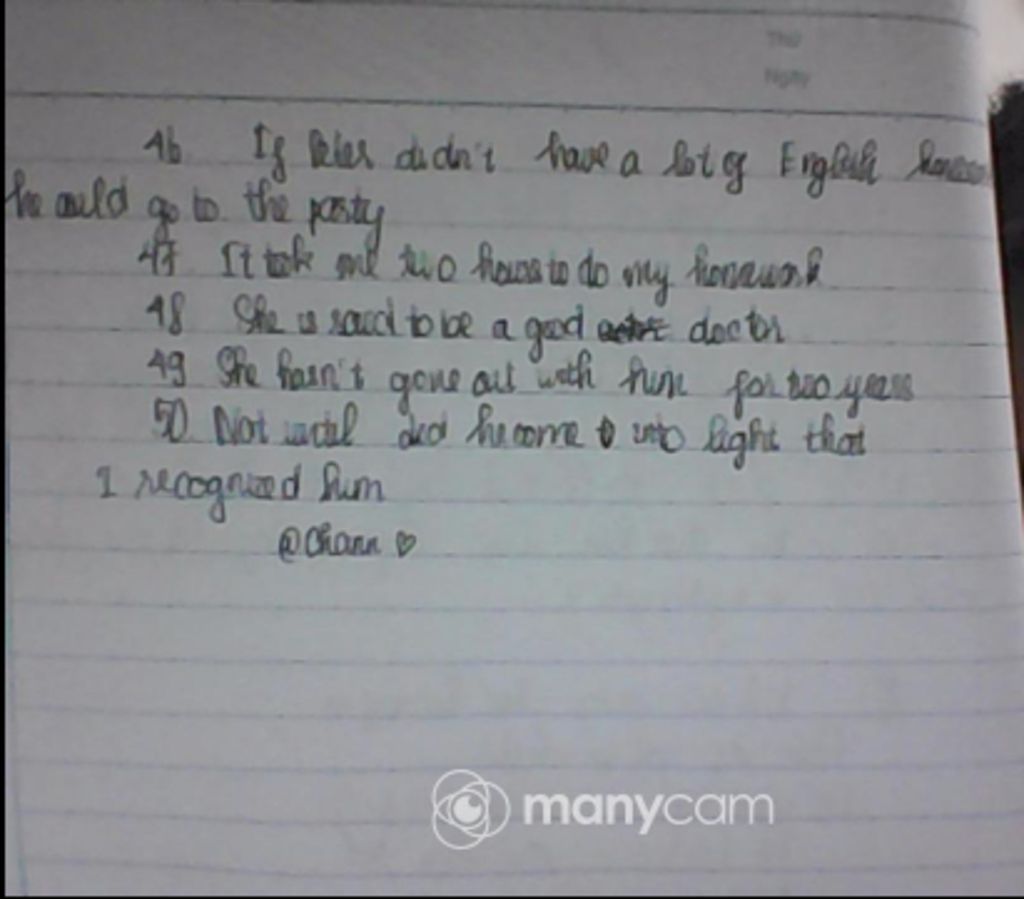 Thứ
Ngày
46 If Peter didn't have a lot of English
he could go to the party
47 It took me two hours to do my homework
48 She is said to be a good doctor
49 She hasn't gone out with him for two years
50 Not until did he come into light that
I recognized him
@Chann ♡
manycam